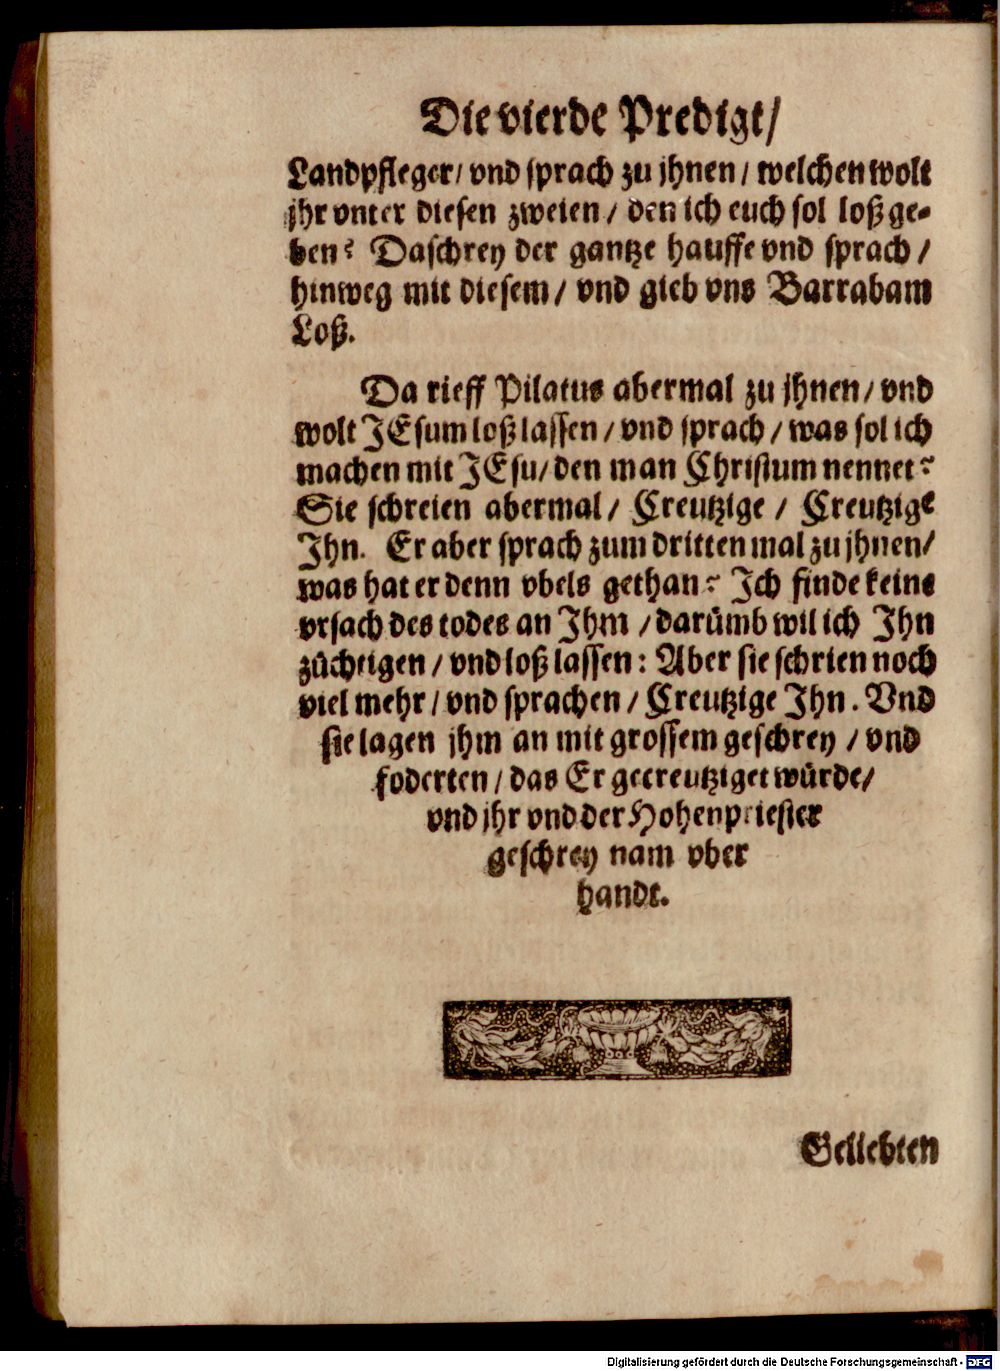 Die vierde Predigt/
Landpfleger/ vnd sprach zu jhnen/ welchen wolt
jhr vnter diesen zweien/ den ich euch sol loß ge-
ben? Da schrey der gantze hauffe vnd sprach/
hinweg mit diesem/ vnd gieb vns Barrabam
Loß.
Da rieff Pilatus abermal zu jhnen/ vnd
wolt JEsum loß lassen/ vnd sprach/ was sol ich
machen mit JEsu/ den man Christum nennet?
Sie schreien abermal/ Creutzige/ Creutzige
Jhn. Er aber sprach zum dritten mal zu jhnen/
was hat er denn vbels gethan? Jch finde keine
vrsach des todes an Jhm/ darümb wil ich Jhn
züchtigen/ vnd loß lassen: Aber sie schrien noch
viel mehr/ vnd sprachen/ Creutzige Jhn. Vnd
sie lagen jhm an mit grossem geschrey/ vnd
foderten/ das Er gecreutziget würde/
vnd jhr vnd der Hohenpriester
geschrey nam vber
handt.
Geliebten
Digitalisierung gefördert durch die Deutsche Forschungsgemeinschaft - DFG